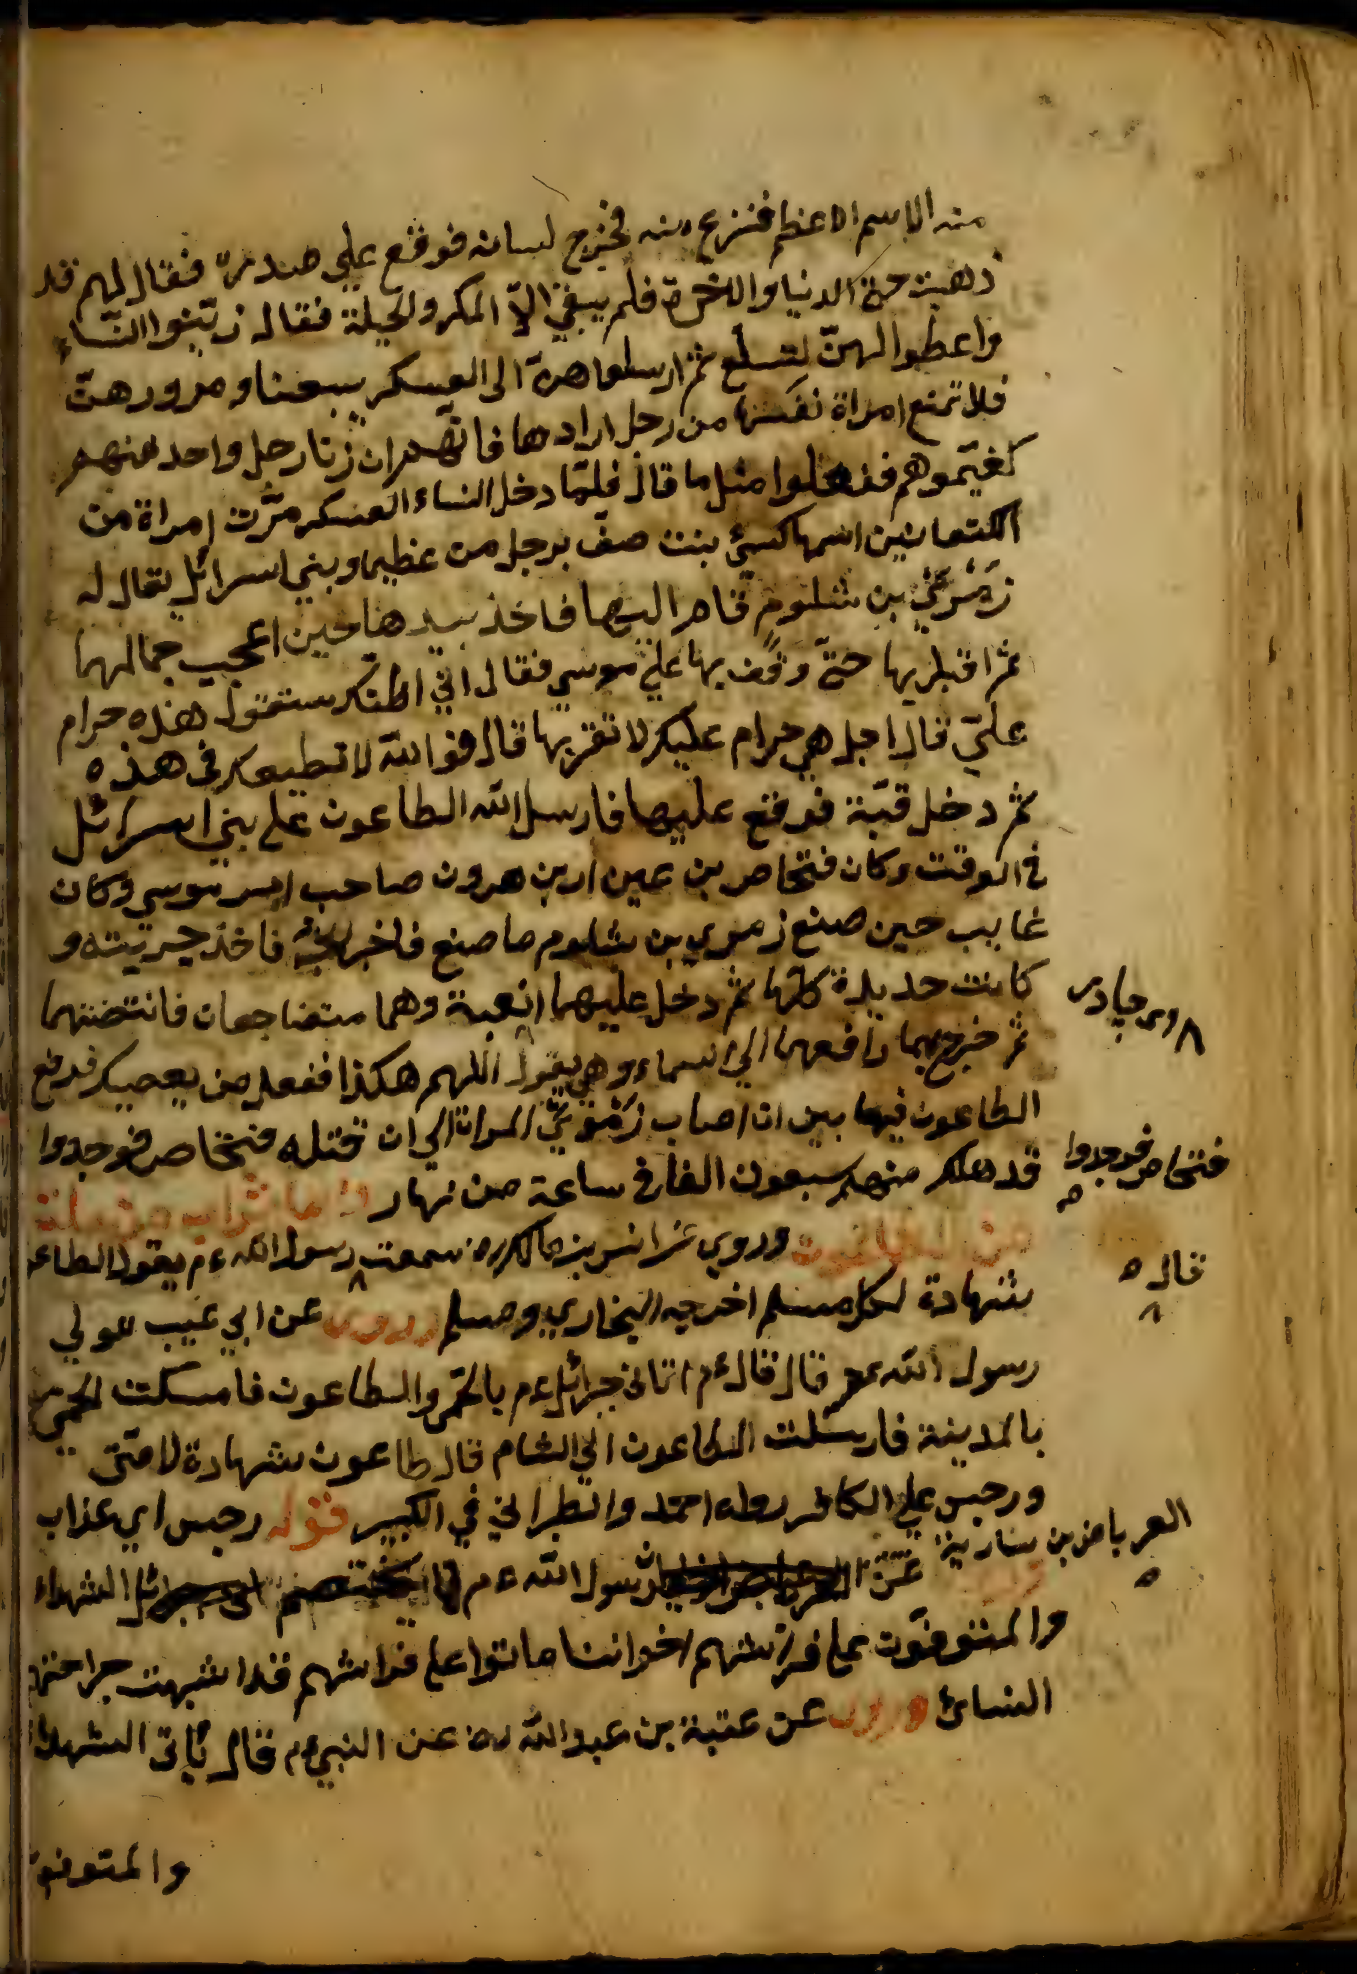 منه الاسم الاعظم فنزع منه فخرج لسانه فوقع علي صدره فقال لهم قد
ذهبت منّي الدنيا والاخرة فلم يبق الّا المكر والحيلة فقال زيّنوا النساء
واعطوا لهنّ لسلع ثم ارسلوا هنّ الى العسكر يبعنا ومرور هنّ
فلا تمنع امراة نفسها من رجل ارادها فانهم ان زنا رجل واحد منهم
كفيتموهم ففعلوا مثل ما قال فلمّا دخل النساء العسكر مرّت امراة من
الكنعانيين اسمها كسئ بنت صفّ برجل من عظيما وبني اسرائل يقال له
زمري بن شلوم قام اليها فاخذ بيدها حين اعجب جمالها
ثم اقبل بها حتّى وقف بها علي موسي فقال اني اظنك ستقول هذه حرام
عليّ قال اجل هي حرام عليك لا تقربها قال فوالله لا تطيعك في هذه
ثم دخل قبّة فوقع عليها فارسل الله الطاعون علي بني اسرائل
في الوقت وكان فنخاص بن عيزار بن هرون صاحب امر موسي وكان
غايب حين صنع زمري بن شلوم ما صنع فاخبر فاخذ حربته و
كانت حديدة كلّها ثم دخل عليهما القبة وهما متضاجعان فانتضمهما
ثم خرج بهما رافعهما الي السماء وهي يقول اللهم هكذا ففعل من يعصيك فرفع
الطاعون فيها بين ان اصاب زمري المراة الي ان قتله فنخاص فوجدوا
قد هلك منهم سبعون الفا في ساعة من نهار
من الطاعون وروي عن انس بن مالك رض سمعت رسول الله عم يقول الطاعو
شهادة لكل مسلم اخرجه البخاري ومسلم وروي عن ابي عسيب مولي
رسول الله عم قال قال عم اتاني جبرائل عم بالحمّى والطاعون فامسكت الحمّى
بالمدينة فارسلت الطاعون الي الشام قال طاعون شهادة لامّتى
ورجس علي الكافر رواه احمد والطبراني في الكبير قوله رجس اي عذاب
عن رسول الله عم قال يختصم الشهداء
والمتوفون علي فراشهم اخواننا ماتوا علي فراشهم قد اشبهت جراحتهم
النسائ وروي عن عتبة بن عبد الله رض عن النبي عم قال يأتي الشهداء
والمتوفون
فنخاص فوجدوا
قال
العرباض بن سارية